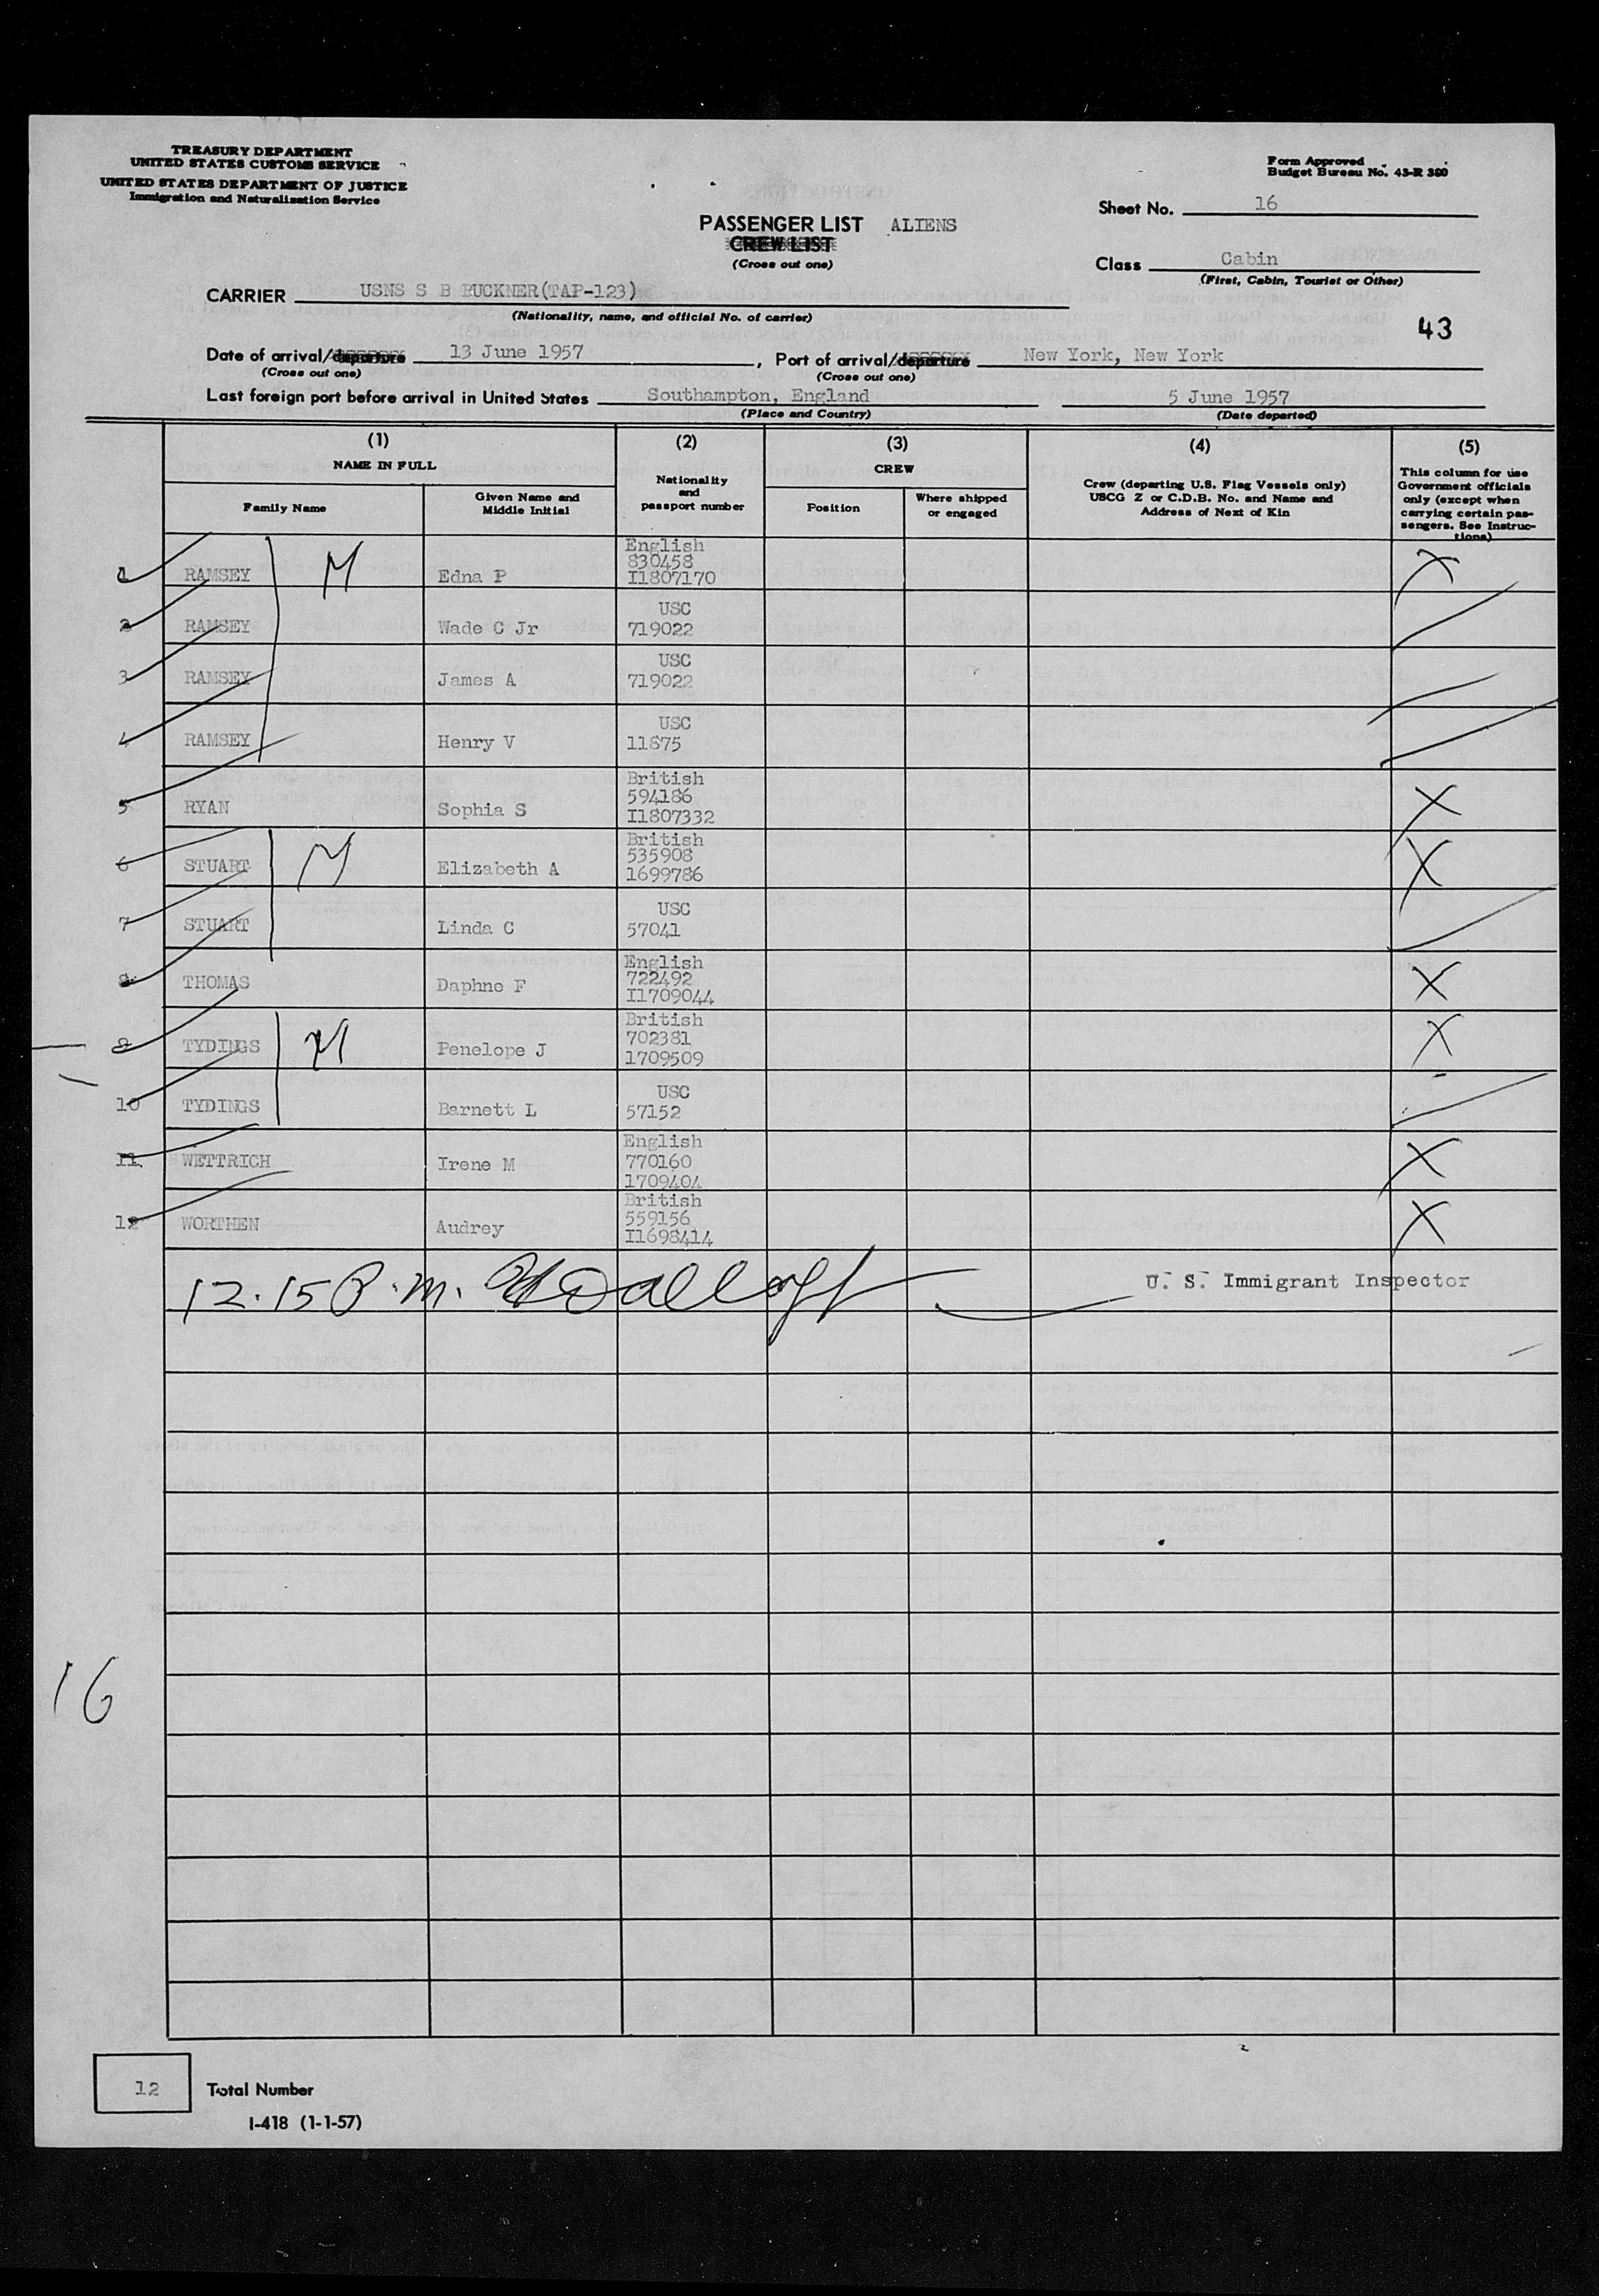 TREASURY DEPARTMENT
UNITED STATES CUSTOMS SERVICE
UNITED STATES DEPARTMENT OF JUSTICE
Immigration and Naturalization Service
Form Approved
Budget Bureau No. 43-R 380
Sheet No. 16
PASSENGER LIST ALIENS
CREW LIST
(Cross out one)
Class Cabin
(First, Cabin, Tourist or Other)
CARRIER USNS S B BUCKNER(TAP-123)
(Nationality, name, and official No. of carrier)
43
Date of arrival/departure 13 June 1957, Port of arrival/departure New York, New York
(Cross out one) (Cross out one)
Last foreign port before arrival in United States Southampton, England 5 June 1957
(Place and Country) (Date departed)
(1) (2) (3) (4) (5)
NAME IN FULL
Family Name
Given Name and Middle Initial
Nationality and passport number
CREW
Position
Where shipped or engaged
Crew (departing U.S. Flag Vessels only)
USCG Z or C.D.B. No. and Name and
Address of Next of Kin
This column for use
Government officials
only (except when
carrying certain pas-
sengers. See Instruc-
tions)
1 RAMSEY M Edna P English 830458 I1807170 X
2 RAMSEY Wade C Jr USC 719022
3 RAMSEY James A USC 719022
4 RAMSEY Henry V USC 11875
5 RYAN Sophia S British 594186 I1807332 X
6 STUART M Elizabeth A British 535908 1699786 X
7 STUART Linda C USC 57041
8 THOMAS Daphne F English 722492 I1709044 X
9 TYDINGS M Penelope J British 702381 1709509 X
10 TYDINGS Barnett L USC 57152
11 WETTRICH Irene M English 770160 1709404 X
12 WORTHEN Audrey British 559156 I1698414 X
12.15 P.m. U. S. Immigrant Inspector
16
12 Total Number
I-418 (1-1-57)